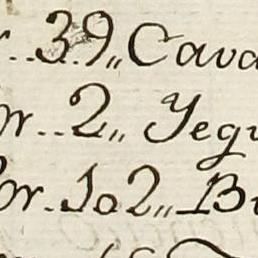 r. . 39,, Cava
or. . 2,, Yegu
Por. 102,, Bu